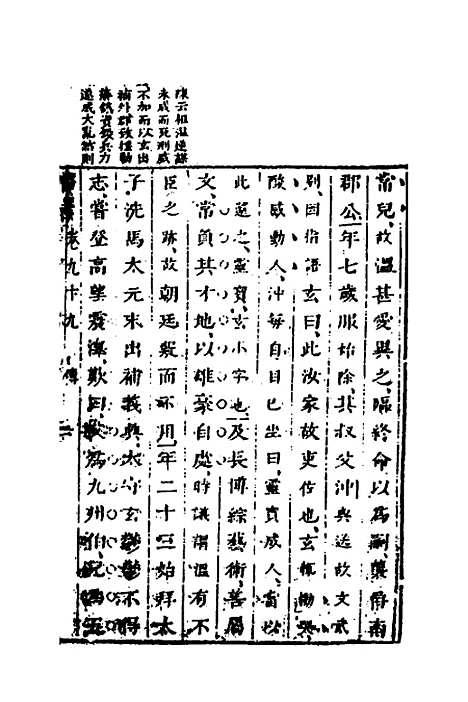 陳云桓溫逆謀
未成而死刑威
不加而以玄出
補外郡致種勳
藩鎮資發兵力
遂成大亂
常兒故溫甚愛異之臨終命以爲嗣襲爵南
郡公年七歲服始除其叔父沖與送故文武
別因指語玄曰此汝家故吏佐也玄
酸感動人沖每自目己坐曰靈寶成人當以
此還之靈寶玄小字也及長博綜藝術善屬
文常負其才地以雄豪自處時議謂溫有不
臣之跡故朝廷疑而不用年二十三始拜太
子洗馬太元末出補義興太守玄鬱鬱不得
志嘗登高望震澤歎曰父爲九州伯兒爲五
卷九十九
傳